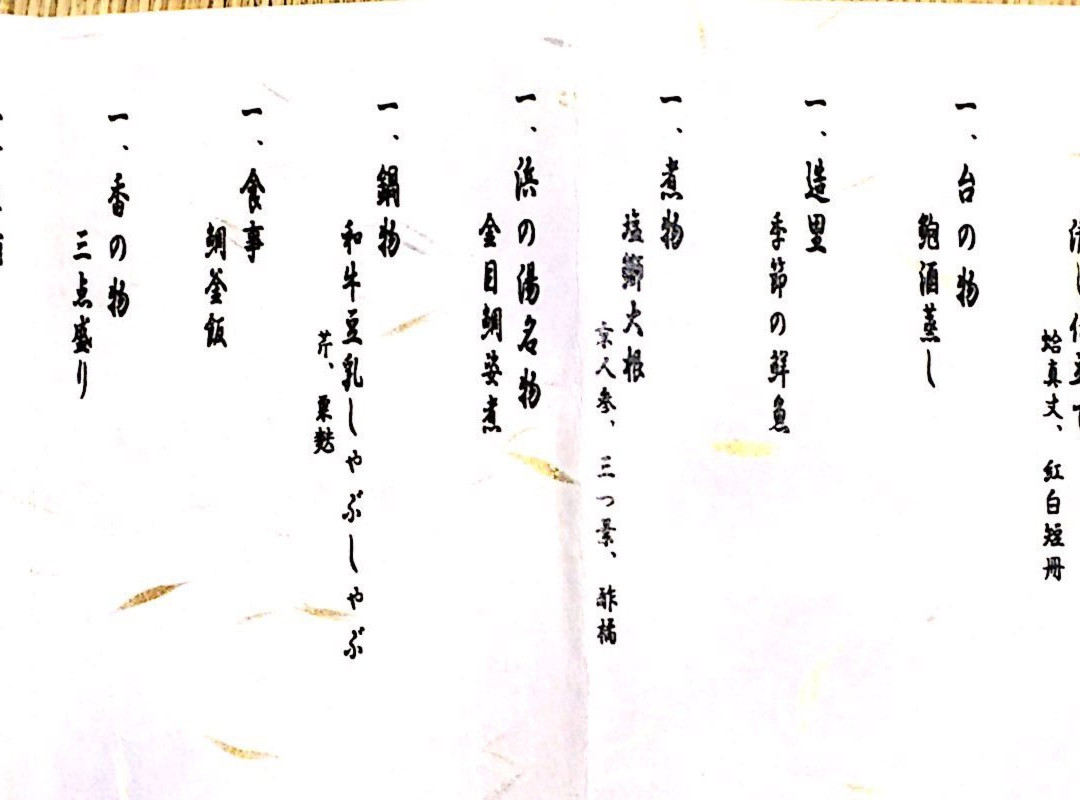 蛤真丈、紅白短冊
一、台の物
鮑酒蒸し
一、造里
季節の鮮魚
一、煮物
塩鰤大根
京人参、三つ葉、酢橘
一、浜の湯名物
金目鯛姿煮
一、鍋物
和牛豆乳しゃぶしゃぶ
芹、粟麩
一、食事
鯛釜飯
一、香の物
三点盛り